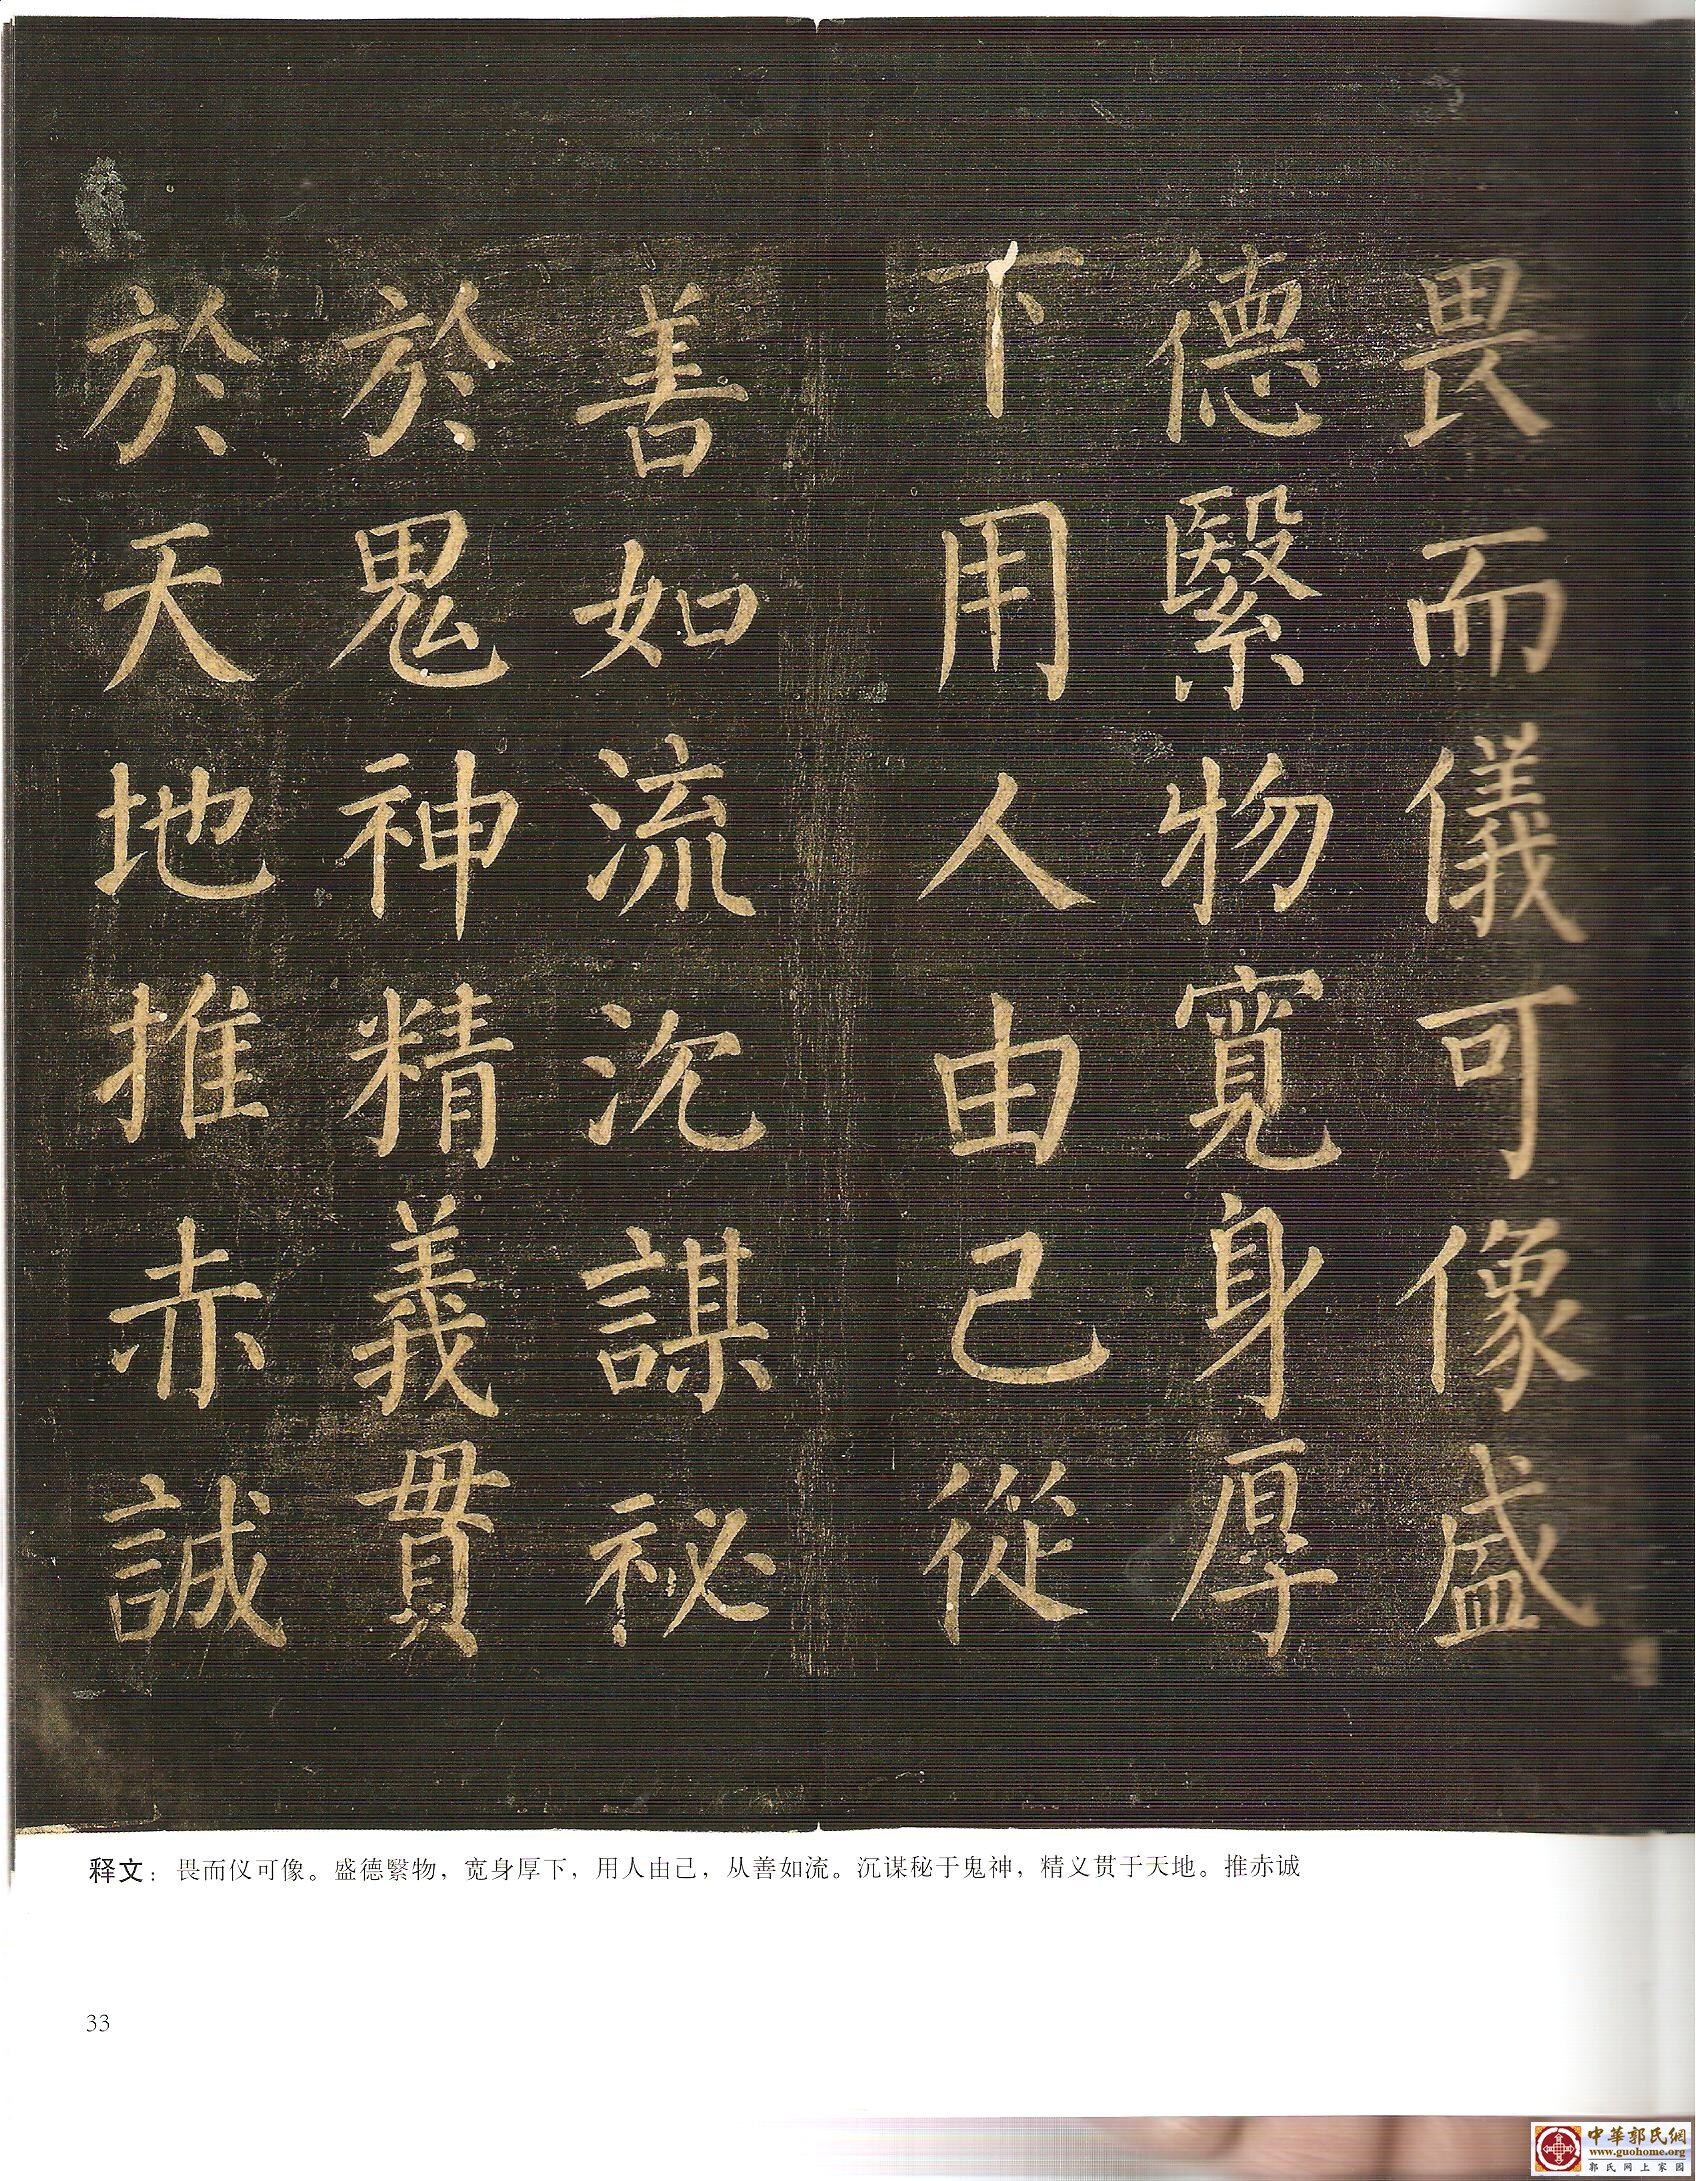 畏而儀可像盛
德繄物寬身厚
下用人由己從
善如流沉謀祕
於鬼神精義貫
於天地推赤誠
释文：畏而仪可像。盛德繄物，宽身厚下，用人由己，从善如流。沉谋秘于鬼神，精义贯于天地。推赤诚
33
中華郭氏網
www.guohome.org
郭氏网上家园